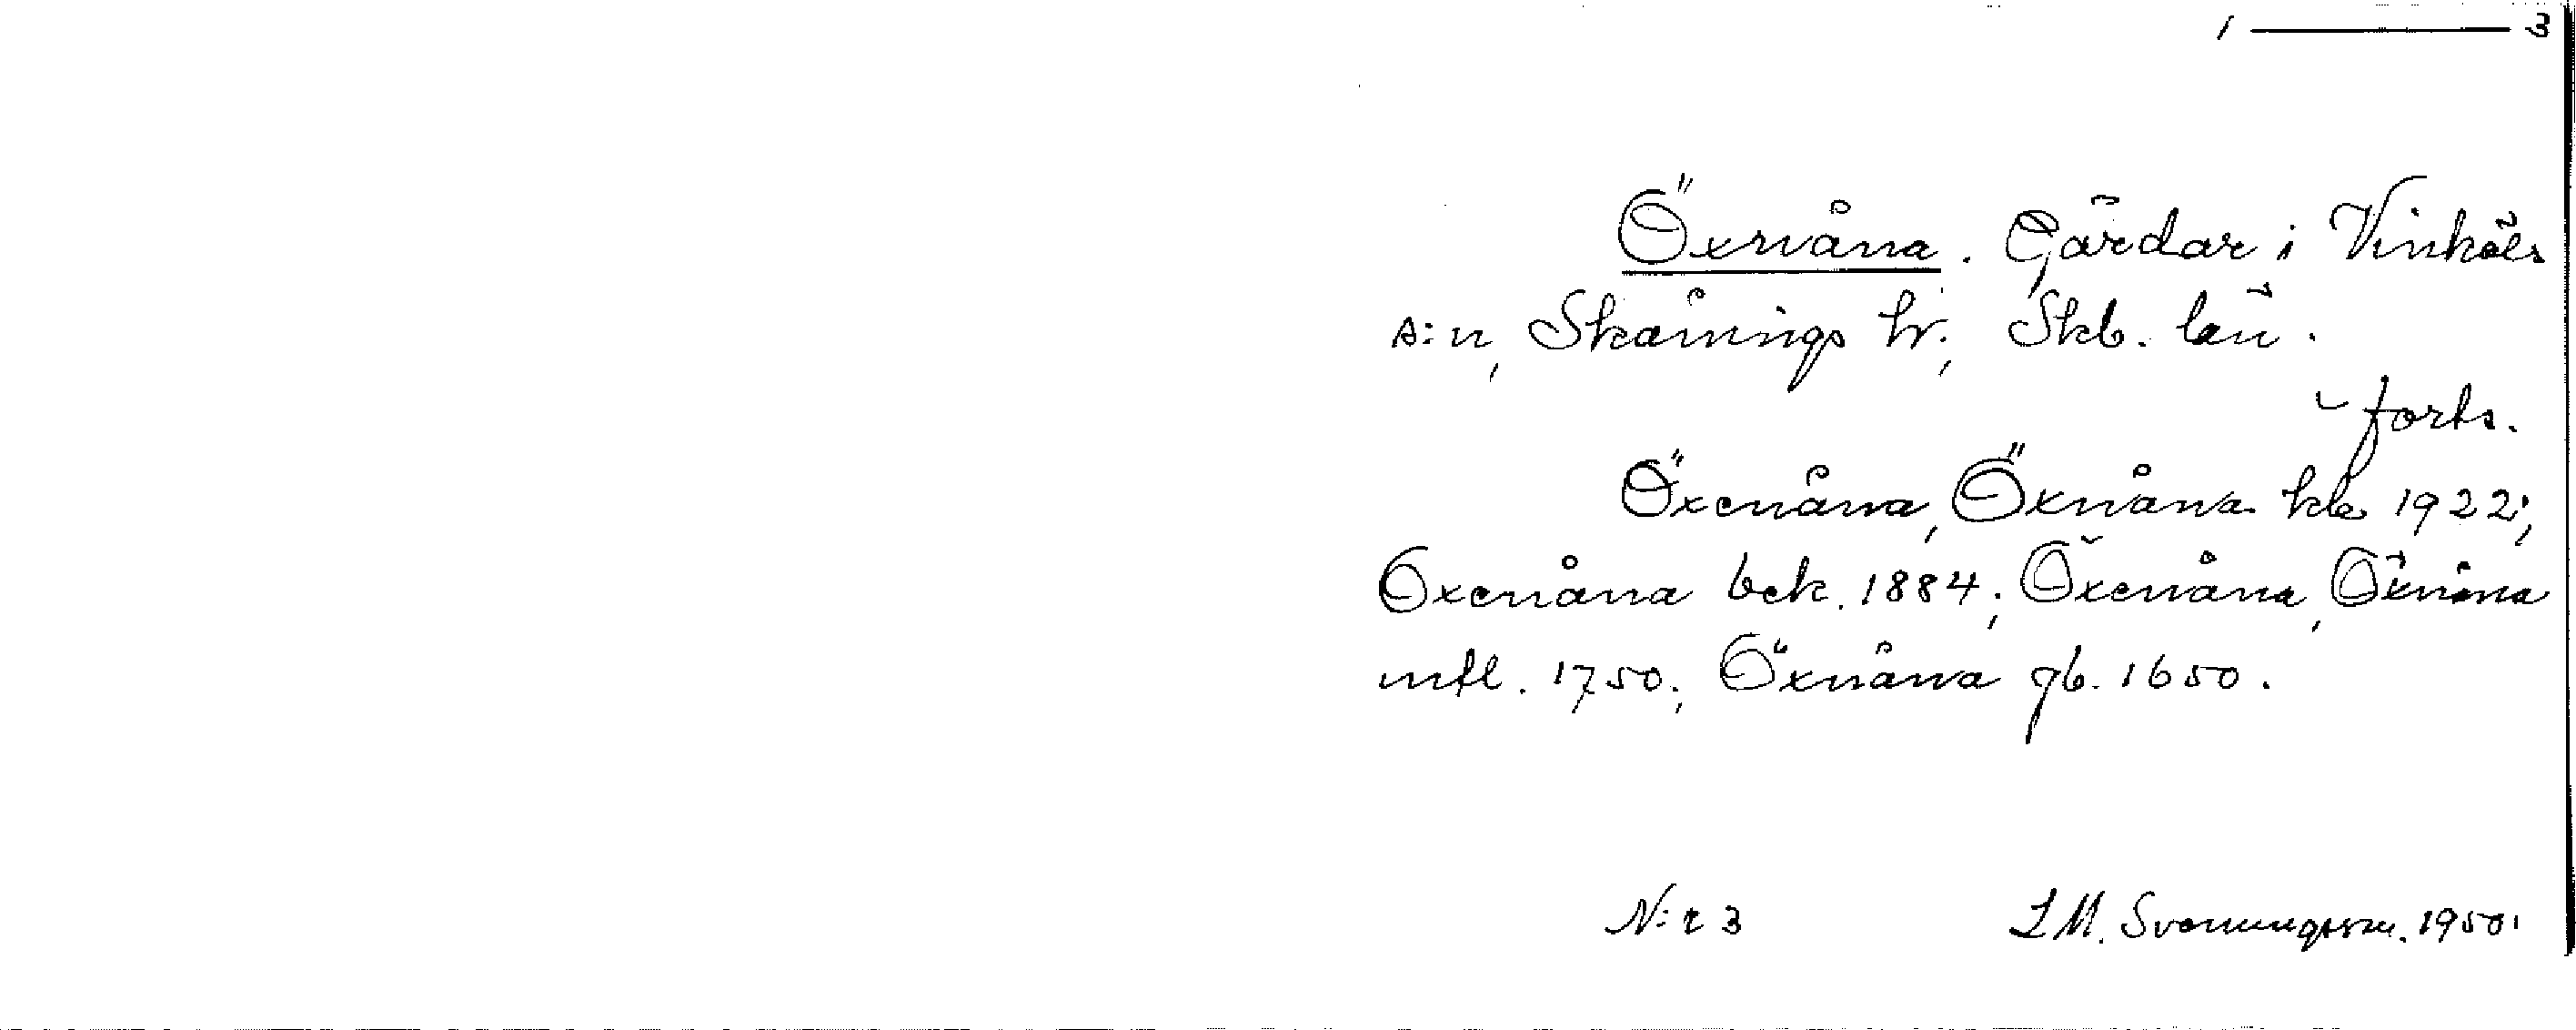 1 ——— 3
Öxnåna. Gårdar i Vinköls
s:n, Skånings hr., Skb. län.
forts.
Öxenåna, Öxnåna kb 1922;
Oxenåna bek. 1884; Öxenåna, Öxnåna
mtl. 1750; Öxnåna gb. 1650.
N:r 3 L M. Svenungsson. 1950.